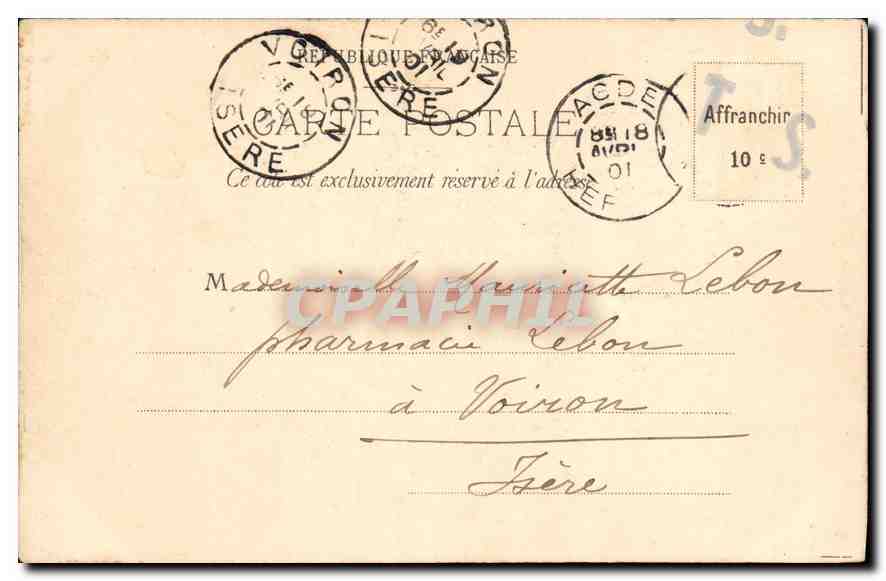 RÉPUBLIQUE FRANÇAISE
CARTE POSTALE
Ce côté est exclusivement réservé à l'adresse
VOIRON
ISÈRE
VOIRON
ISÈRE
AGDE
18
AVRIL
01
HÉR
Affranchir
10 c
T S.
S.
Mademoiselle Mauricette Lebon
pharmacie Lebon
à Voiron
Isère
CPAPHIL